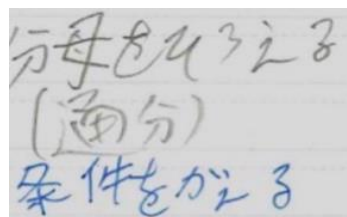 分母をそろえる
(通分)
条件をがえる